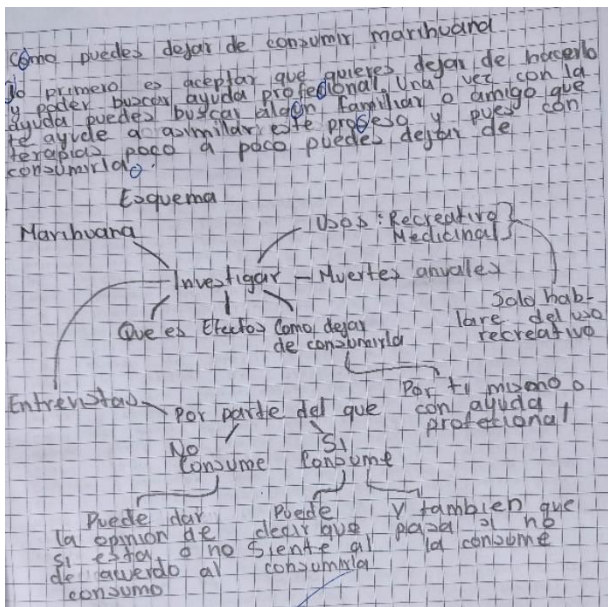 Cómo puedes dejar de consumir marihuana
Lo primero es aceptar que quieres dejar de hacerlo
y poder buscar ayuda profecional. Una vez con la
ayuda puedes buscar algún familiar o amigo que
te ayude a asimilar este proseso y pues con
terapias poco a poco puedes dejar de
consumirla.
Esquema
Marihuana
Usos: Recreativo
Medicinal
Investigar - Muertes anuales
Solo hab-
lare del uso
recreativo
Que es Efectos Como dejar
de consumirla
Por ti mismo o
con ayuda
profecional
Entrevistas
Por parte del que
No
Consume
Si
Consume
Puede dar
la opinion de
si esta o no
de acuerdo al
consumo
Puede
decir que
siente al
consumirla
Y tambien que
pasa si no
la consume